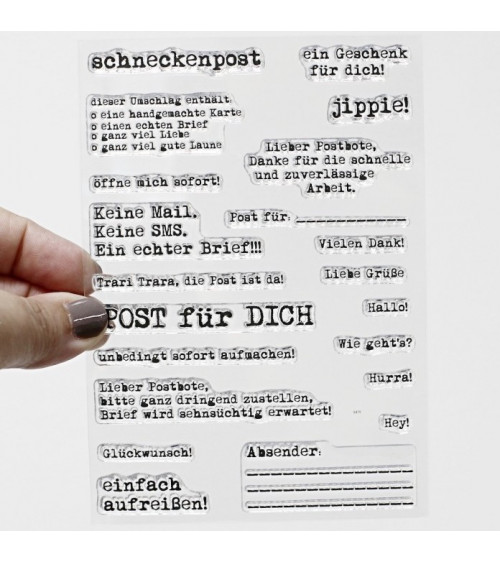 schneckenpost
ein Geschenk
für dich!
dieser Umschlag enthält
o eine handgemachte Karte
o einen echten Brief
o ganz viel Liebe
o ganz viel gute Laune
jippie!
Lieber Postbote,
Danke für die schnelle
und zuverlässige
Arbeit.
öffne mich sofort!
Keine Mail.
Keine SMS.
Ein echter Brief!!!
Post für:
Vielen Dank!
Trari Trara, die Post ist da!
Liebe Grüße
POST für DICH
Hallo!
Wie geht's?
unbedingt sofort aufmachen!
Hurra!
Lieber Postbote,
bitte ganz dringend zustellen,
Brief wird sehnsüchtig erwartet!
Hey!
Glückwunsch!
Absender:
einfach
aufreißen!